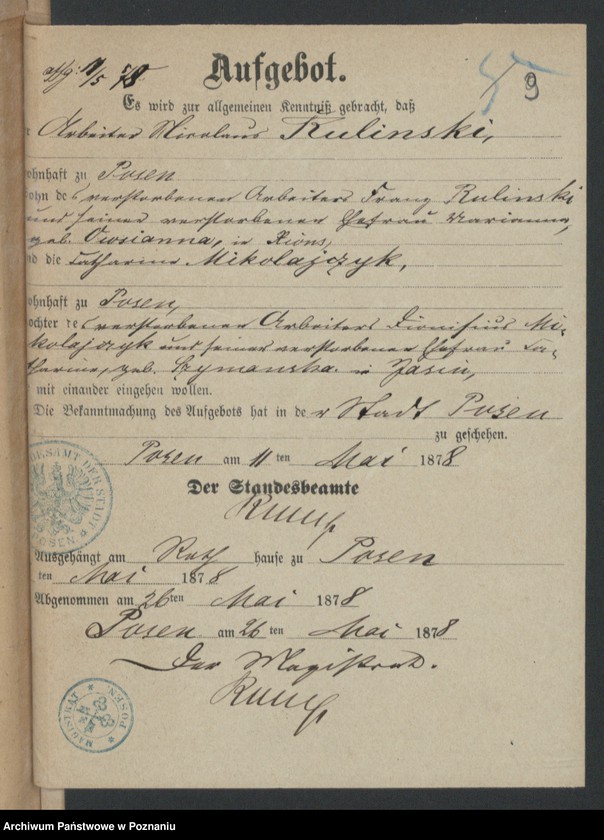 11/5 78
Aufgebot.
9
Es wird zur allgemeinen Kenntniß gebracht, daß
r Arbeiter Nicolaus Kulinski,
ohnhaft zu Posen
ohn des verstorbenen Arbeiters Franz Kulinski
und seiner verstorbenen Ehefrau Marianna,
geb. Owsianna, in
nd die Catharina Mikolajczyk,
ohnhaft zu Posen,
ochter des verstorbenen Arbeiters Dionisius Mi-
kolajczyk und seiner verstorbenen Ehefrau Ca-
tharina, geb. Szymanska in Jasin,
mit einander eingehen wollen.
Die Bekanntmachung des Aufgebots hat in der Stadt Posen
zu geschehen.
Posen am 11 ten Mai 1878
Der Standesbeamte
Ausgehängt am Rath hause zu Posen
ten Mai 1878
Abgenommen am 26 ten Mai 1878
Posen am 26 ten Mai 1878
Der Magistrat.
DESAMT DER STADT POSEN
MAGISTRAT POSEN
Archiwum Państwowe w Poznaniu